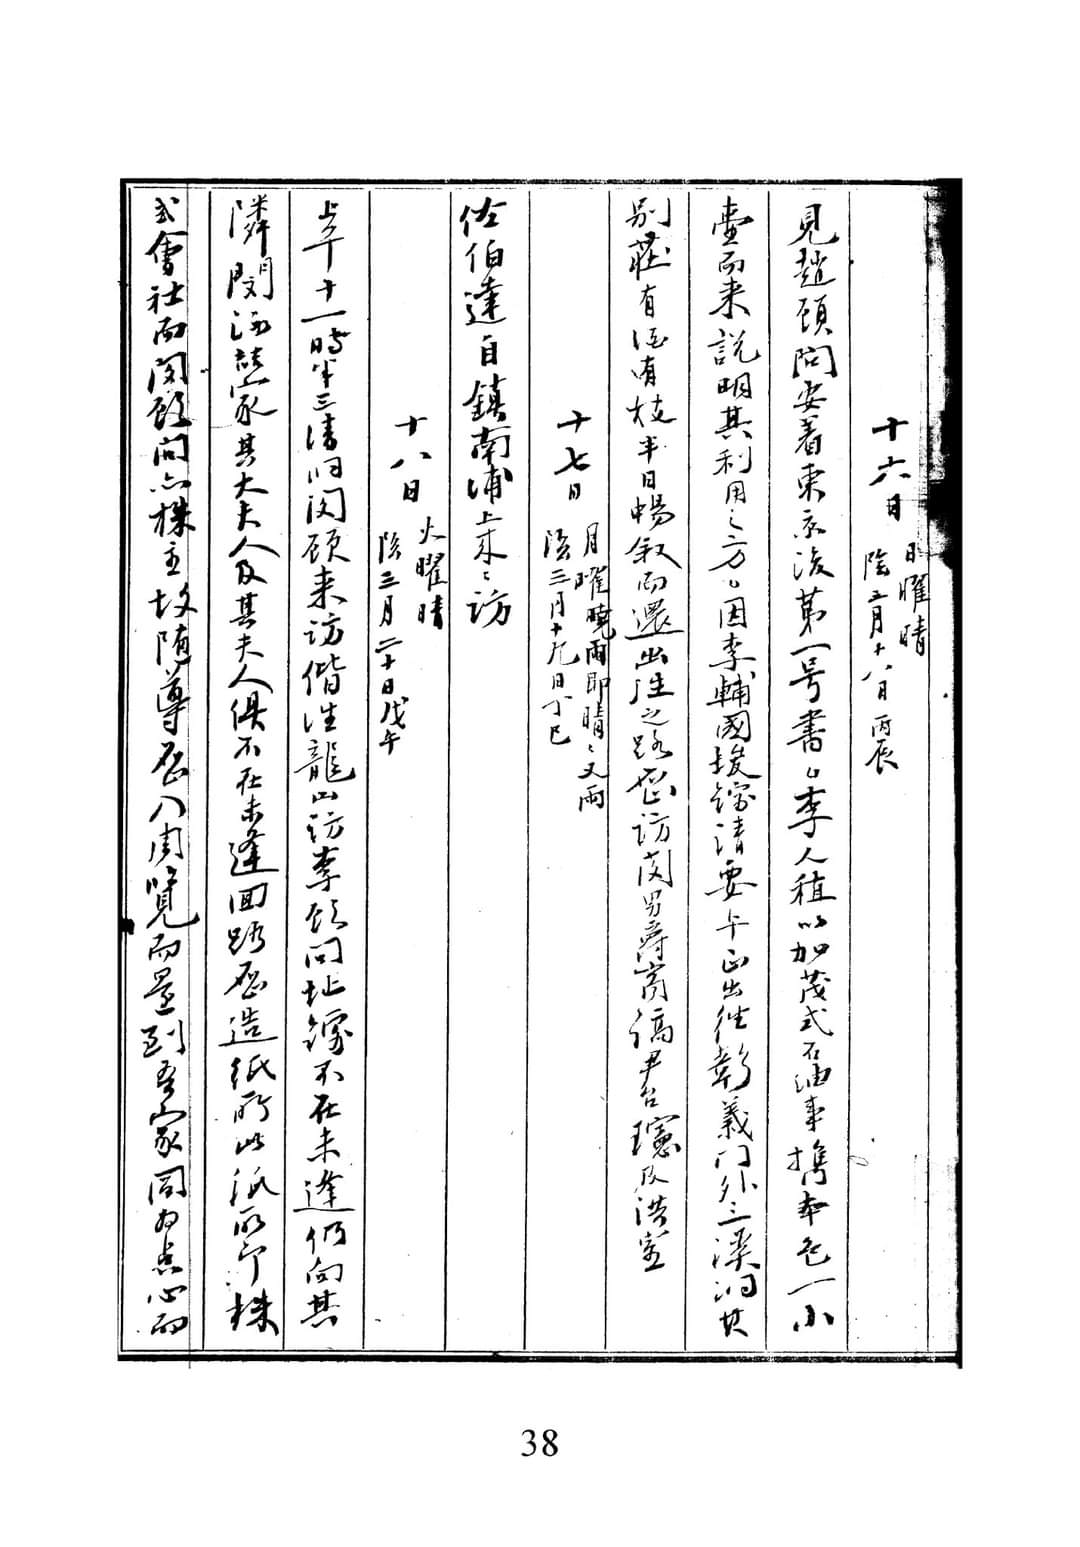 十六日 日曜晴
陰三月十八日丙辰
見趙顧問安着東京後第一号書々李人稙以加茂式石油車携本色一小
壷而来説明其利用之方々因李輔國埈鎔請要午正出往彰義門外三溪洞其
別莊有酒有枝半日暢叙而還出往之路歴訪閔男壽高 尹台 及洪室
十七日 月曜曉雨即晴々又雨
陰三月十九日丁巳
佐伯達自鎮南浦上来々訪
十八日 火曜晴
陰三月二十日戊午
上午十一時半三清洞閔顧来訪偕往龍山訪李顧問址鎔不在未逢仍向其
隣閔泳喆家其大夫人及其夫人俱不在未逢回路歴造紙所此紙所即株
式會社而閔顧問亦株主故随導歴入周覧而還到吾家同為点心而
38